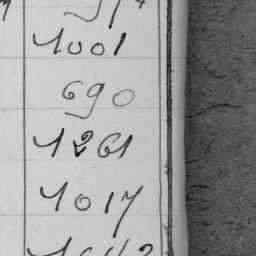 1001
690
1261
1017